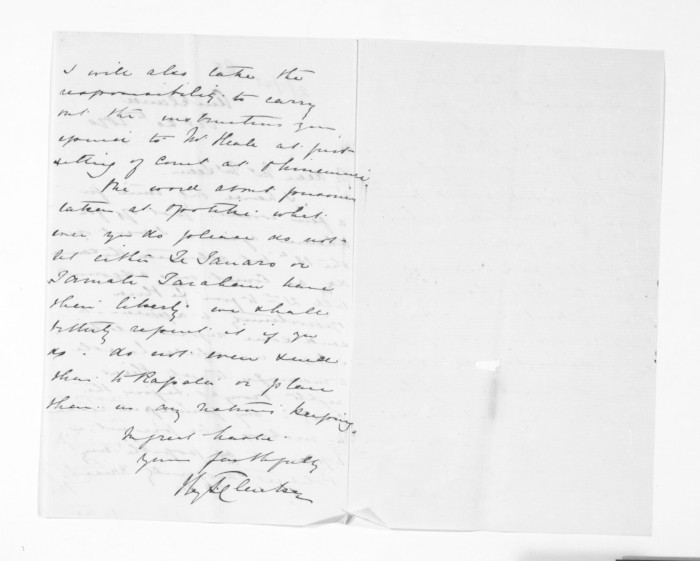 I will also take the
responsibility to carry
out the instructions you
to Mr Heale at first
sitting of Court at Ohinemuri.
One word about prisoners
taken at Opotiki. What
ever you do please do not
let either Te Tanaro or
Tamati Tarahau have
their liberty we shall
bitterly repent it if you
do. do not even send
them to Rapata or place
them in any natives keeping.
In great haste.
Yours faithfully
Hy T Clarke